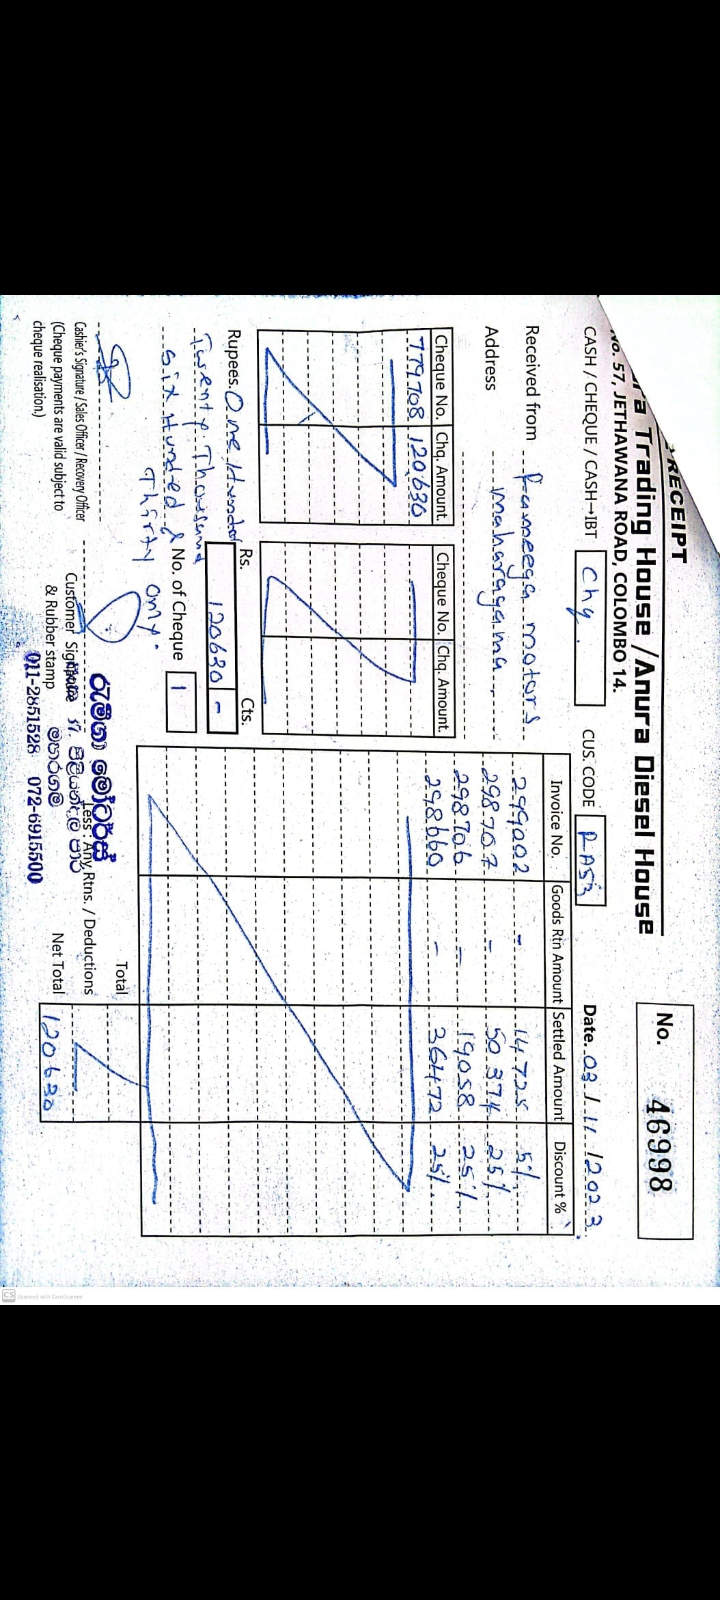 RECEIPT
ra Trading House / Anura Diesel House
No. 57, JETHAWANA ROAD, COLOMBO 14.
No. 46998
CASH / CHEQUE / CASH→IBT Chq.
CUS. CODE RA53
Date. 03 / 11 / 2023
Received from Rameega motors
Address maharagama
Cheque No. Chq. Amount.
779708 120,630
Cheque No. Chq. Amount.
Invoice No. Goods Rtn Amount Settled Amount Discount %
299002 - 14725 5%
298707 - 50374 25%
298706 - 19058 25%
298660 - 36472 25%
Rupees. One Hundred
Twenty Thousand
Six Hundred &
Thirty only.
Rs. Cts.
120630 -
No. of Cheque 1
Total
Less : Any Rtns. / Deductions
Net Total 120630
Cashier's Signature / Sales Officer / Recovery Officer
(Cheque payments are valid subject to
cheque realisation.)
Customer Signature
& Rubber stamp
රැමීගා මෝටර්ස්
මහරගම
011-2851528 072-6915500
CS Scanned with CamScanner